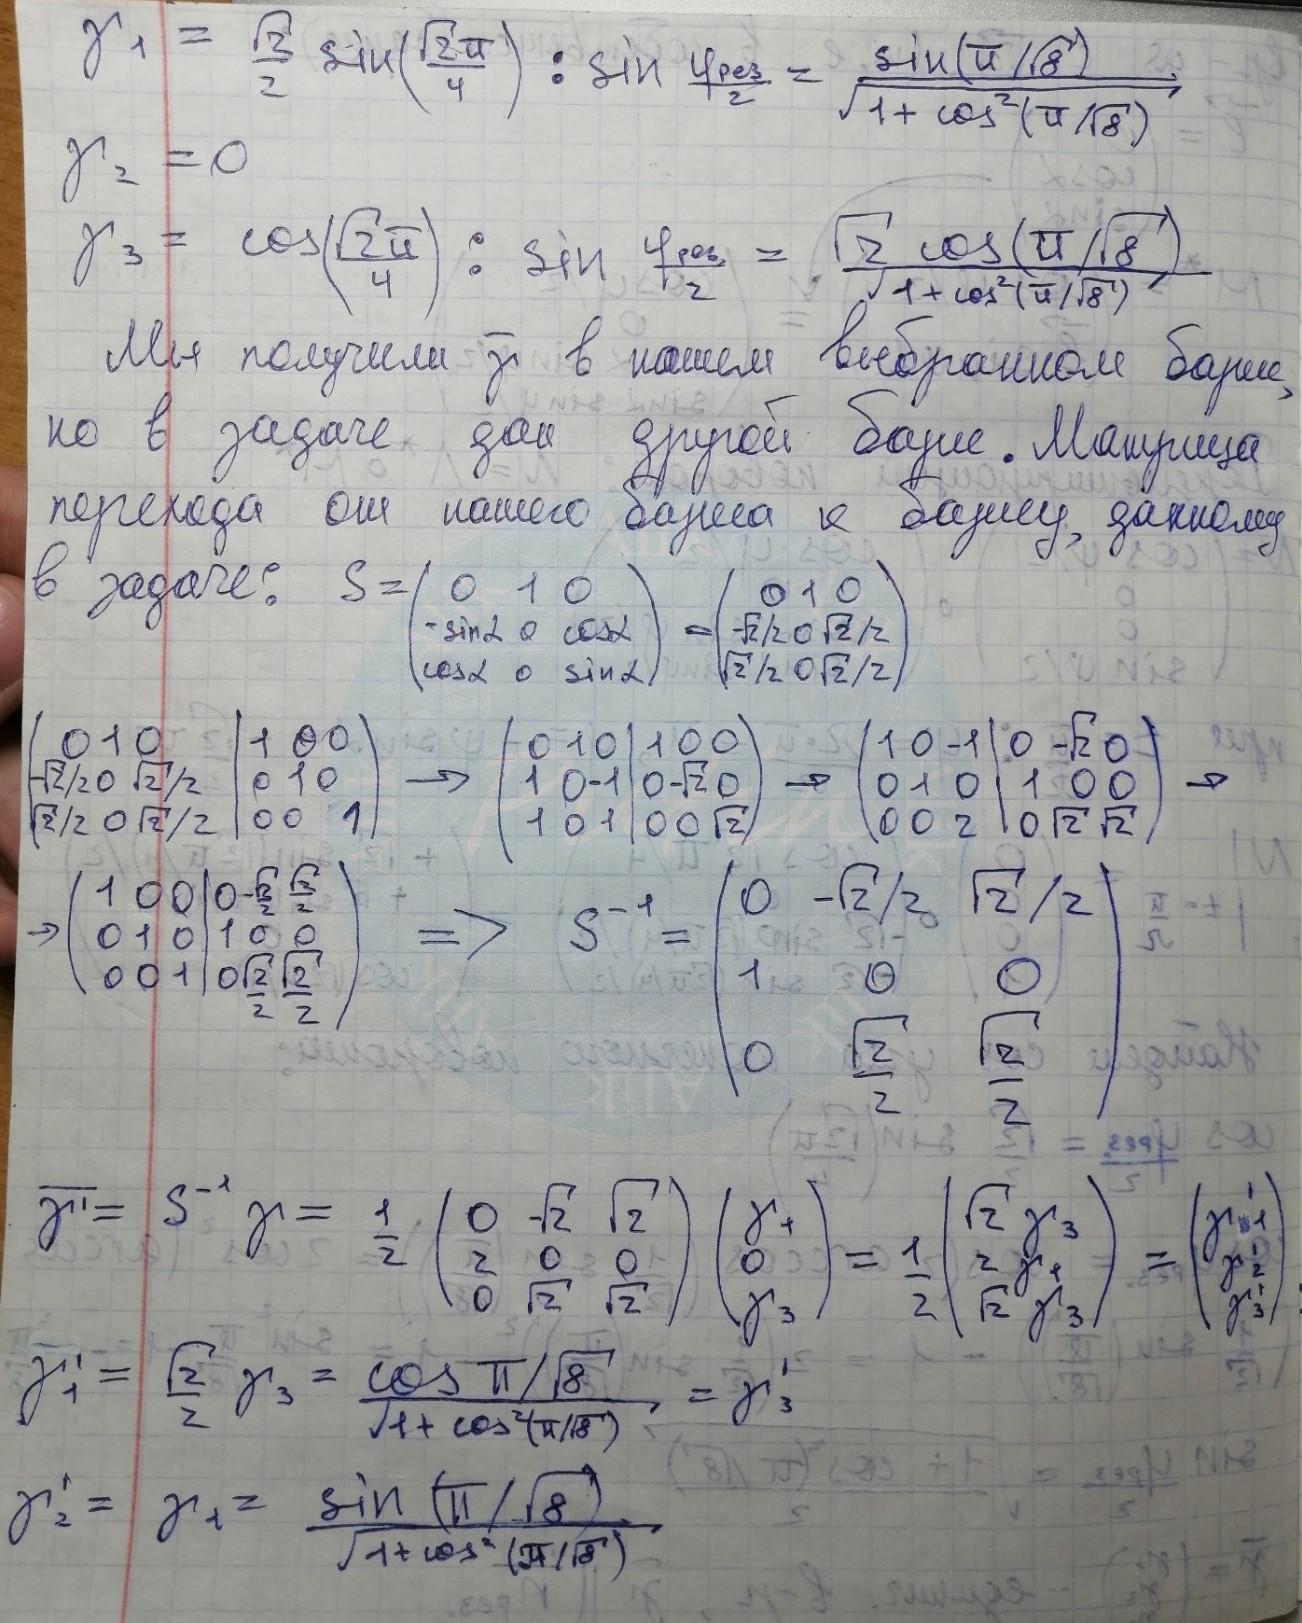 γ₁ = √2/2 sin(√2π/4) : sin φрез/2 = sin(π/√8) / √(1 + cos²(π/√8))
γ₂ = 0
γ₃ = cos(√2π/4) : sin φрез/2 = √2 cos(π/√8) / √(1 + cos²(π/√8))
Мы получили γ̄ в нашем выбранном базисе,
но в задаче дан другой базис. Матрица
перехода от нашего базиса к базису, данному
в задаче: S = (0 1 0; -sinα 0 cosα; cosα 0 sinα) = (0 1 0; -√2/2 0 √2/2; √2/2 0 √2/2)
(0 1 0 | 1 0 0; -√2/2 0 √2/2 | 0 1 0; √2/2 0 √2/2 | 0 0 1) → (0 1 0 | 1 0 0; 1 0 -1 | 0 -√2 0; 1 0 1 | 0 0 √2) → (1 0 -1 | 0 -√2 0; 0 1 0 | 1 0 0; 0 0 2 | 0 √2 √2) →
→ (1 0 0 | 0 -√2/2 √2/2; 0 1 0 | 1 0 0; 0 0 1 | 0 √2/2 √2/2) => S⁻¹ = (0 -√2/2 √2/2; 1 0 0; 0 √2/2 √2/2)
γ̄' = S⁻¹ γ = 1/2 (0 -√2 √2; 2 0 0; 0 √2 √2) (γ₁; 0; γ₃) = 1/2 (√2 γ₃; 2 γ₁; √2 γ₃) = (γ'₁; γ'₂; γ'₃)
γ'₁ = √2/2 γ₃ = cos π/√8 / √(1 + cos²(π/√8)) = γ'₃
γ'₂ = γ₁ = sin(π/√8) / √(1 + cos²(π/√8))